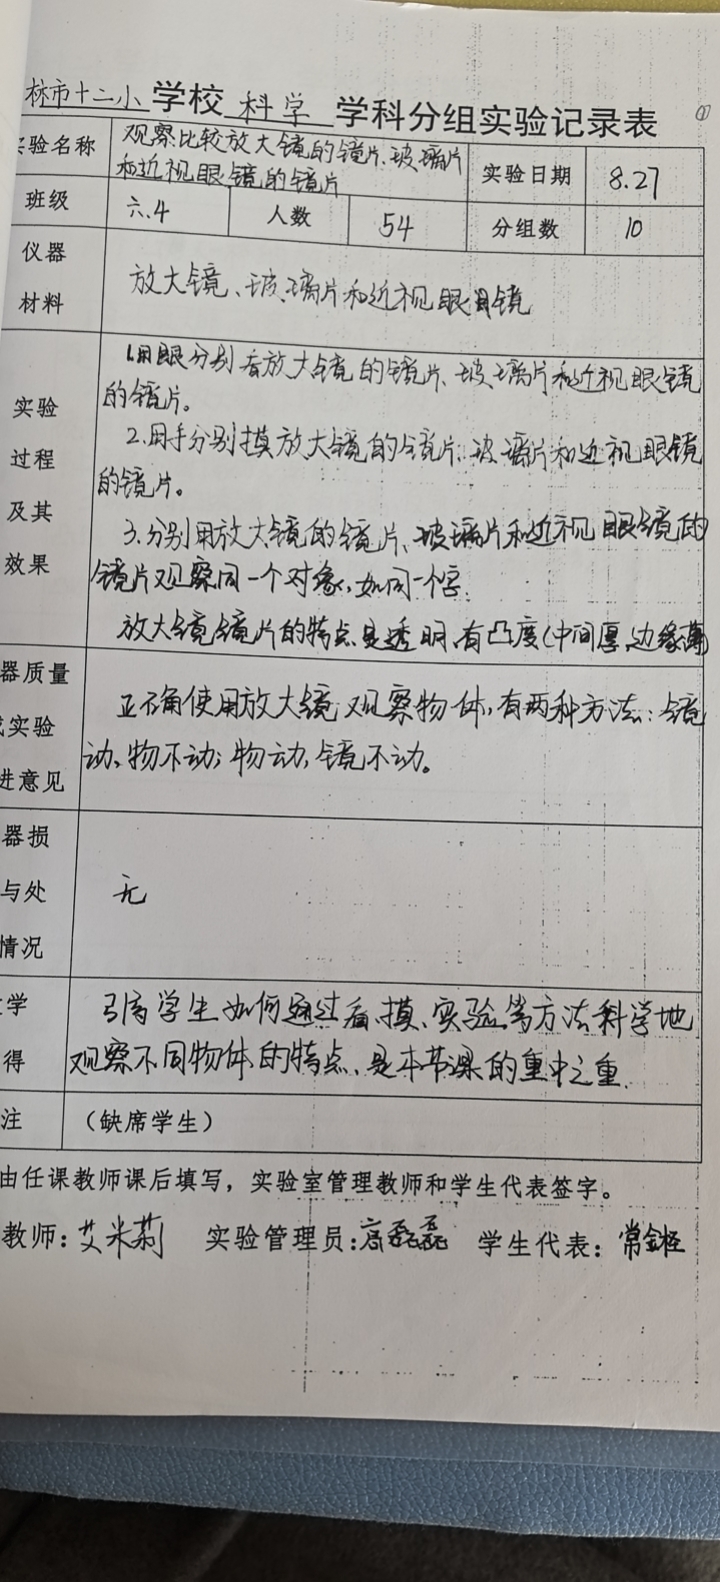 林市十二小学校 科学 学科分组实验记录表
①
验名称 观察比较放大镜的镜片、玻璃片 实验日期 8.27
和近视眼镜的镜片
班级 六.4 人数 54 分组数 10
仪器
材料
放大镜、玻璃片和近视眼镜
实验
过程
及其
效果
1.用眼分别看放大镜的镜片、玻璃片和近视眼镜
的镜片。
2.用手分别摸放大镜的镜片、玻璃片和近视眼镜
的镜片。
3.分别用放大镜的镜片、玻璃片和近视眼镜的
镜片观察同一个对象,如同一个字.
放大镜镜片的特点是透明,有凸度(中间厚,边缘薄)
器质量
实验
进意见
正确使用放大镜观察物体,有两种方法:镜
动、物不动;物动,镜不动。
器损
与处
情况
无
学
得
引导学生如何通过看、摸、实验等方法科学地
观察不同物体的特点、是本节课的重中之重.
注 (缺席学生)
由任课教师课后填写,实验室管理教师和学生代表签字。
教师:艾米莉 实验管理员:高磊磊 学生代表:常